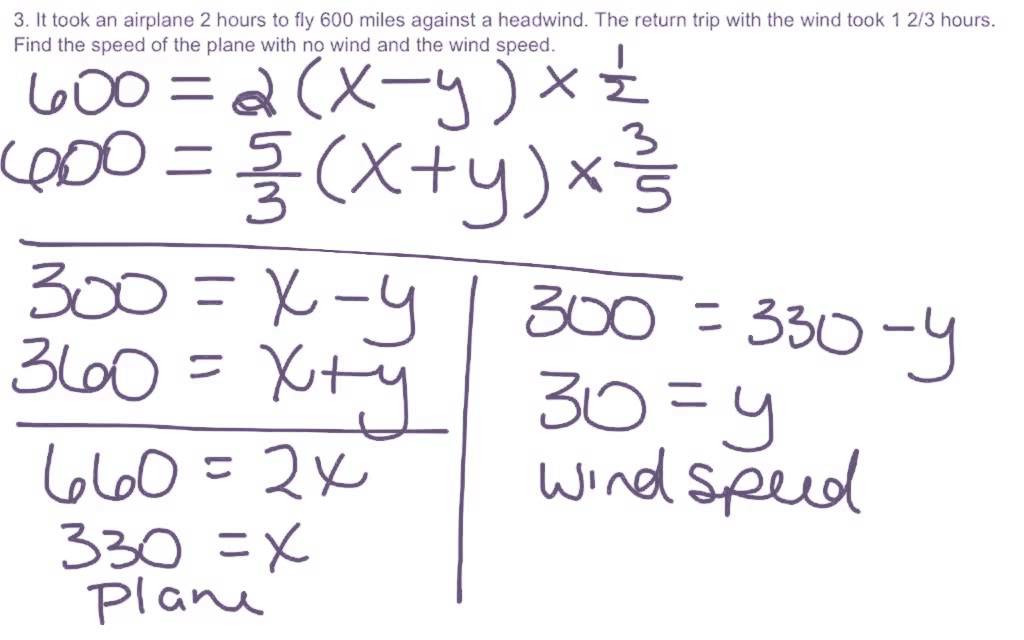 3. It took an airplane 2 hours to fly 600 miles against a headwind. The return trip with the wind took 1 2/3 hours.
Find the speed of the plane with no wind and the wind speed.
600 = 2 (x-y) × 1/2
600 = 5/3 (x+y) × 3/5
300 = x-y
360 = x+y
660 = 2x
330 = x
plane
300 = 330-y
30 = y
wind speed